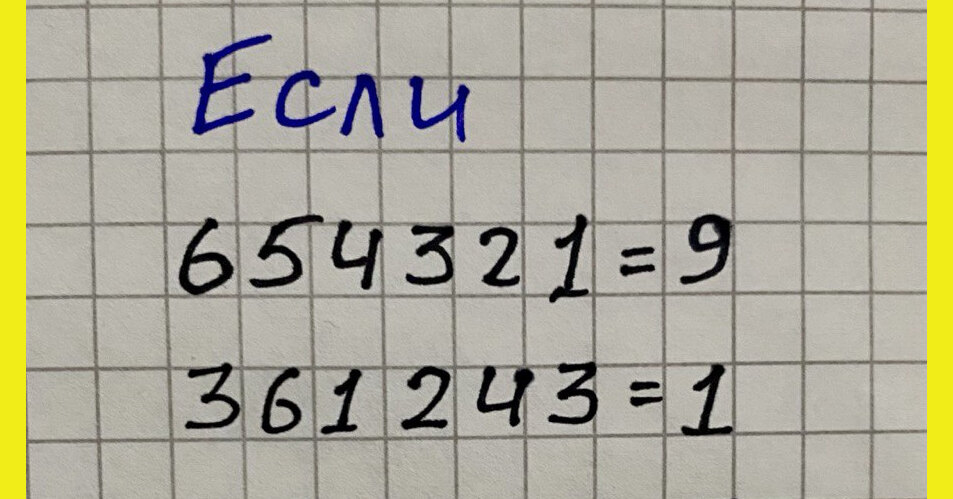 Если
654321=9
361243=1